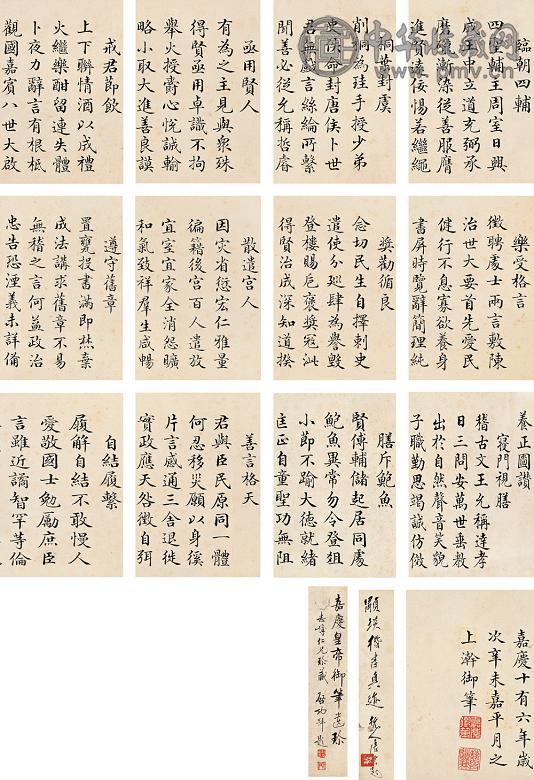 臨朝四輔
四聖輔王周室日興
成王中立道充弼承
磨礱漸染從善服膺
進賢遠佞惕若繼繩
桐葉封虞
削桐為珪手授少弟
史佚命封唐侯卜世
君無戲言絲綸所繫
聞善必從允稱哲睿
亟用賢人
有為之主見與衆殊
得賢亟用卓識不拘
舉火授爵心悅誠輸
略小取大進善良謨
戒君節飲
上下聯情酒以成禮
火繼樂酣留連失體
卜夜力辭言有根柢
觀國嘉賓八世大啟
樂受格言
徵聘處士兩言敷陳
治世大要首先愛民
健行不息寡欲養身
書屏時覽辭簡理純
獎勸循良
念切民生自擇刺史
遣使分巡肆為譽毀
登樓賜卮褒獎冠
得賢治成深知道揆
散遣宮人
因災省愆宏仁雅量
徧籍後宮百人遣放
宜室宜家全消怨曠
和氣致祥羣生咸暢
遵守舊章
置甕投書滿即焚棄
成法講求舊章不易
無稽之言何益政治
忠告恐湮義未詳備
養正圖讚
寢門視膳
稽古文王允稱達孝
日三問安萬世垂教
出於自然聲音笑貌
子職勤思竭誠仿傚
膳斥鮑魚
賢傅輔儲起居同處
鮑魚異常勿令登俎
小節不踰大德就緒
匡正自童聖功無阻
善言格天
君與臣民原同一體
何忍移災願以身徯
片言感通三舍退徙
實政應天咎徵自弭
自結履繫
履解自結不敢慢人
愛敬國士勉勵庶臣
言雖近譎智罕等倫
嘉慶十有六年歲
次辛未嘉平月之
上澣御筆
顒琰楷書真迹
嘉慶皇帝御筆遺珍
仁兄珍藏 啟功題